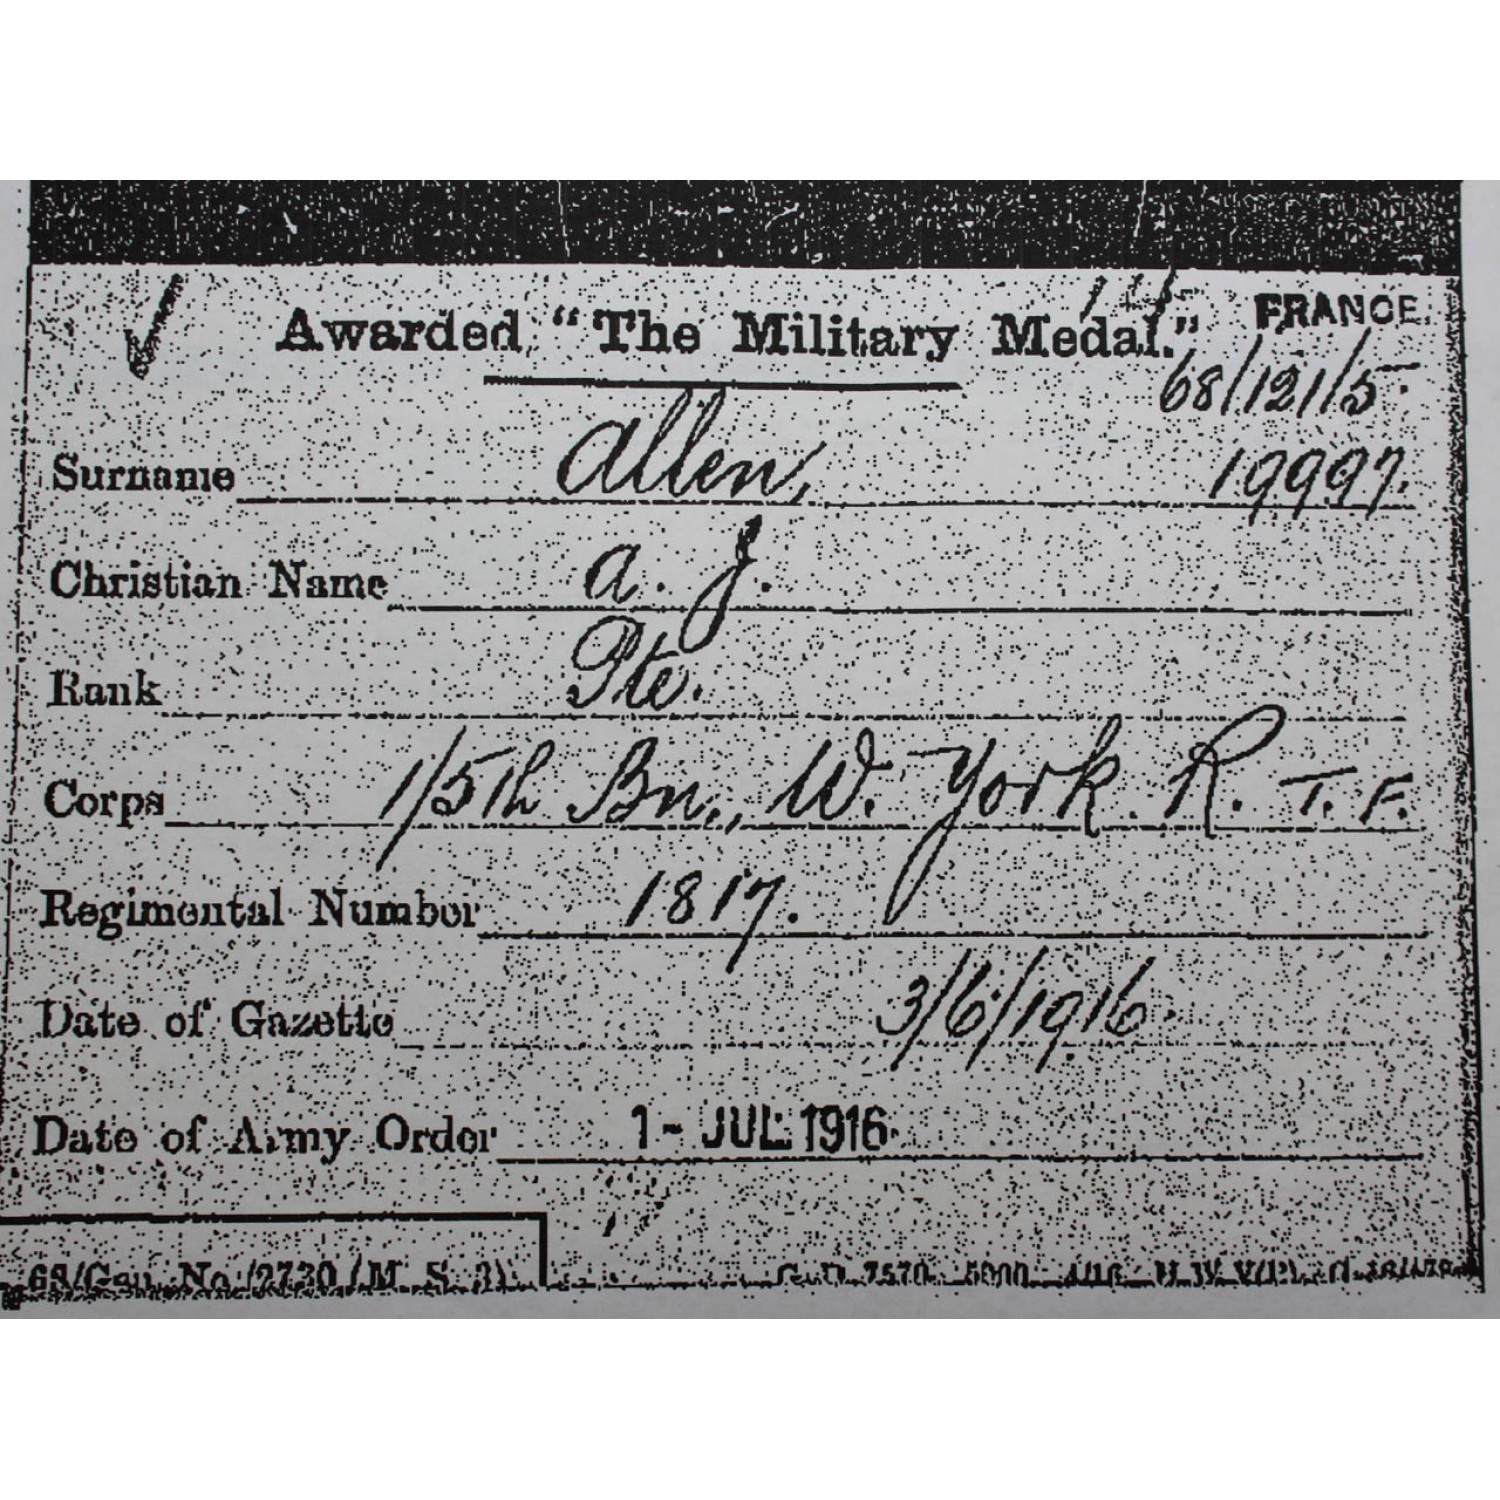 Awarded "The Military Medal." FRANCE.
68/121/5
Surname Allen, 19997.
Christian Name A. J.
Rank Pte.
Corps 1/5th Bn., W. York. R. T. F.
Regimental Number 1817.
Date of Gazette 3/6/1916.
Date of Army Order 1 - JUL 1916
68/Gen. No./2730 (M. S. 3)